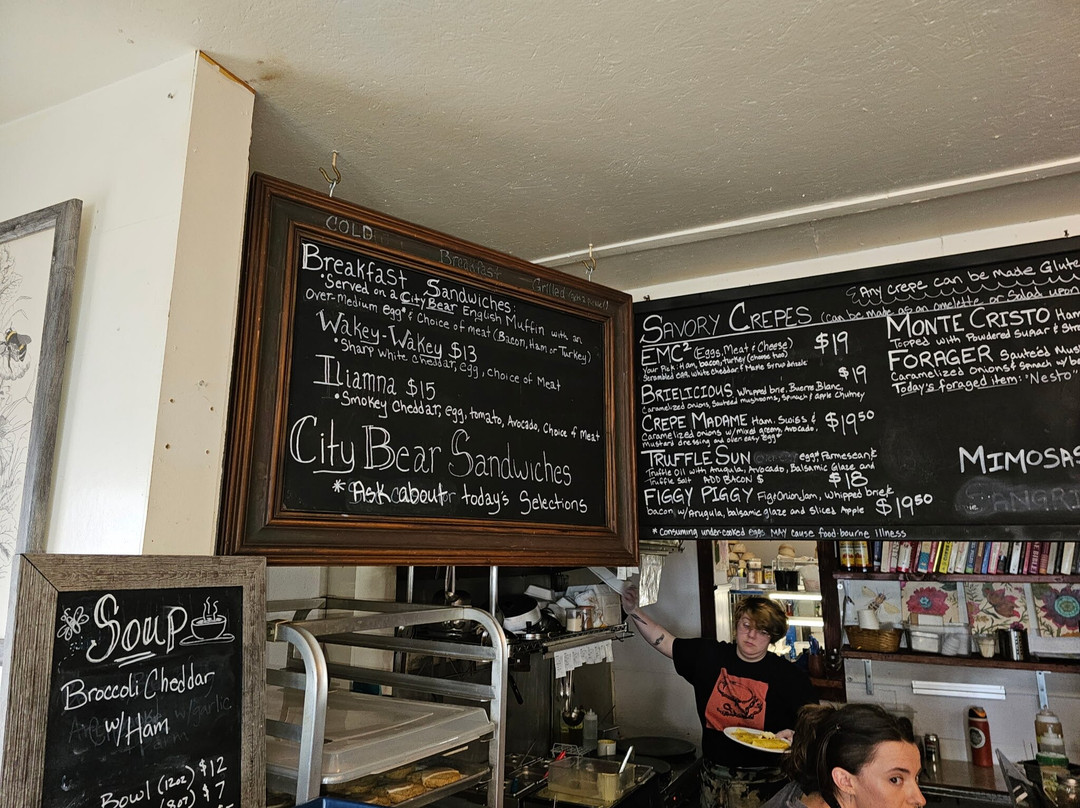 COLD
Breakfast
Breakfast Sandwiches:
•Served on a CityBear English Muffin with an
Over-Medium egg* & Choice of meat (Bacon, Ham or Turkey)
Wakey-Wakey $13
•Sharp white cheddar, egg, choice of Meat
Iliamna $15
•Smokey Cheddar, egg, tomato, Avocado, Choice of Meat
City Bear Sandwiches
*Ask about today's Selections
Soup
Broccoli Cheddar
w/Ham
w/garlic
Bowl (12oz) $12
(8oz) $7
Any crepe can be made Glute
SAVORY CREPES (can be made as an omelette or Salad upon
EMC² (Eggs, Meat & Cheese) $19
Your Pick: Ham, bacon, turkey (choose two)
Scrambled egg, white cheddar &
BRIELICIOUS Whipped brie, Buerre Blanc, $19
Caramelized onions, Sautéed mushrooms, spinach & apple chutney
CREPE MADAME Ham, Swiss & $19⁵⁰
Caramelized onions w/mixed greens, Avocado,
Mustard dressing and over easy egg*
TRUFFLE SUN egg* Parmesean &
Truffle Oil with Arugula, Avocado, Balsamic Glaze and
Truffle Salt ADD BACON $ $18
FIGGY PIGGY Fig & Onion Jam, whipped brie &
bacon, w/Arugula, balsamic glaze and Sliced Apple $19⁵⁰
*Consuming under-cooked eggs MAY cause food-bourne illness
MONTE CRISTO Ham
Topped with Powdered Sugar & Str
FORAGER Sautéed Mus
Caramelized Onions & Spinach w/
Today's foraged item: "Nesto"
MIMOSAS
SANGRI